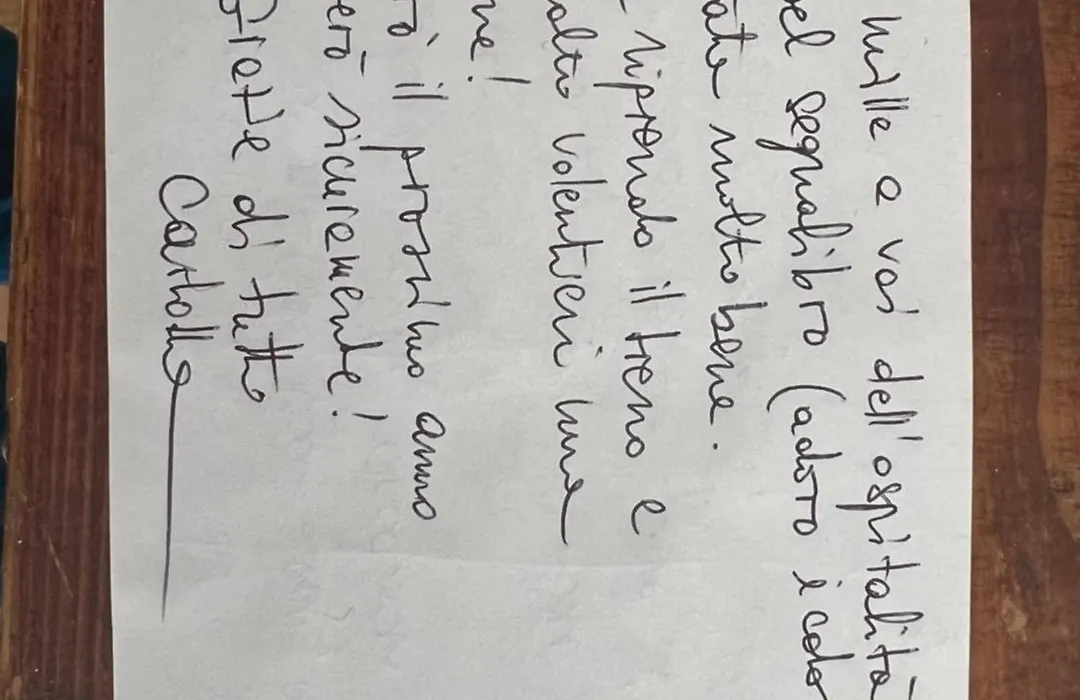 mille a voi dell'ospitalità
el segnalibro (adoro i colo
ate molto bene.
riprendo il treno e
olto volentieri
ne!
rò il prossimo anno
erò sicuramente!
Grazie di tutto